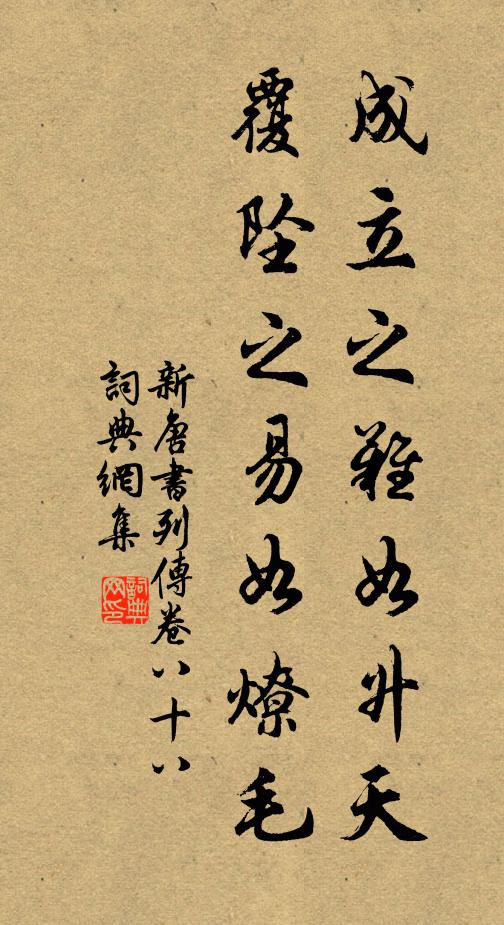 成立之難如升天
覆坠之易如燎毛
新唐書列傳卷八十八
詞典網集
詞典網印